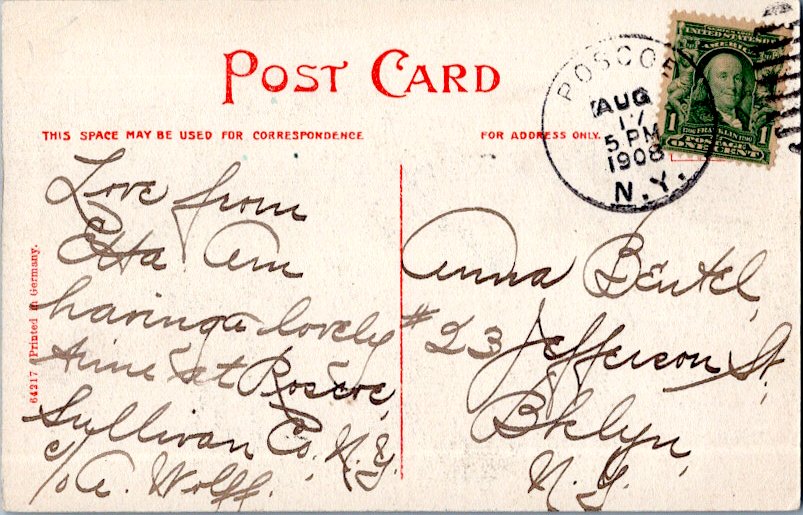 POST CARD
THIS SPACE MAY BE USED FOR CORRESPONDENCE
FOR ADDRESS ONLY.
ROSCOE
AUG
17
5 PM
1908
N.Y.
UNITED STATES OF
AMERICA
1706 FRANKLIN 1790
1 POSTAGE 1
ONE CENT
Love from
Etta Am
having a lovely
time at Roscoe,
Sullivan Co. N.Y.
c/o A. Wolff.
Anna Beutel,
#23 Jefferson St,
Bklyn,
N.Y.
64217 Printed in Germany.